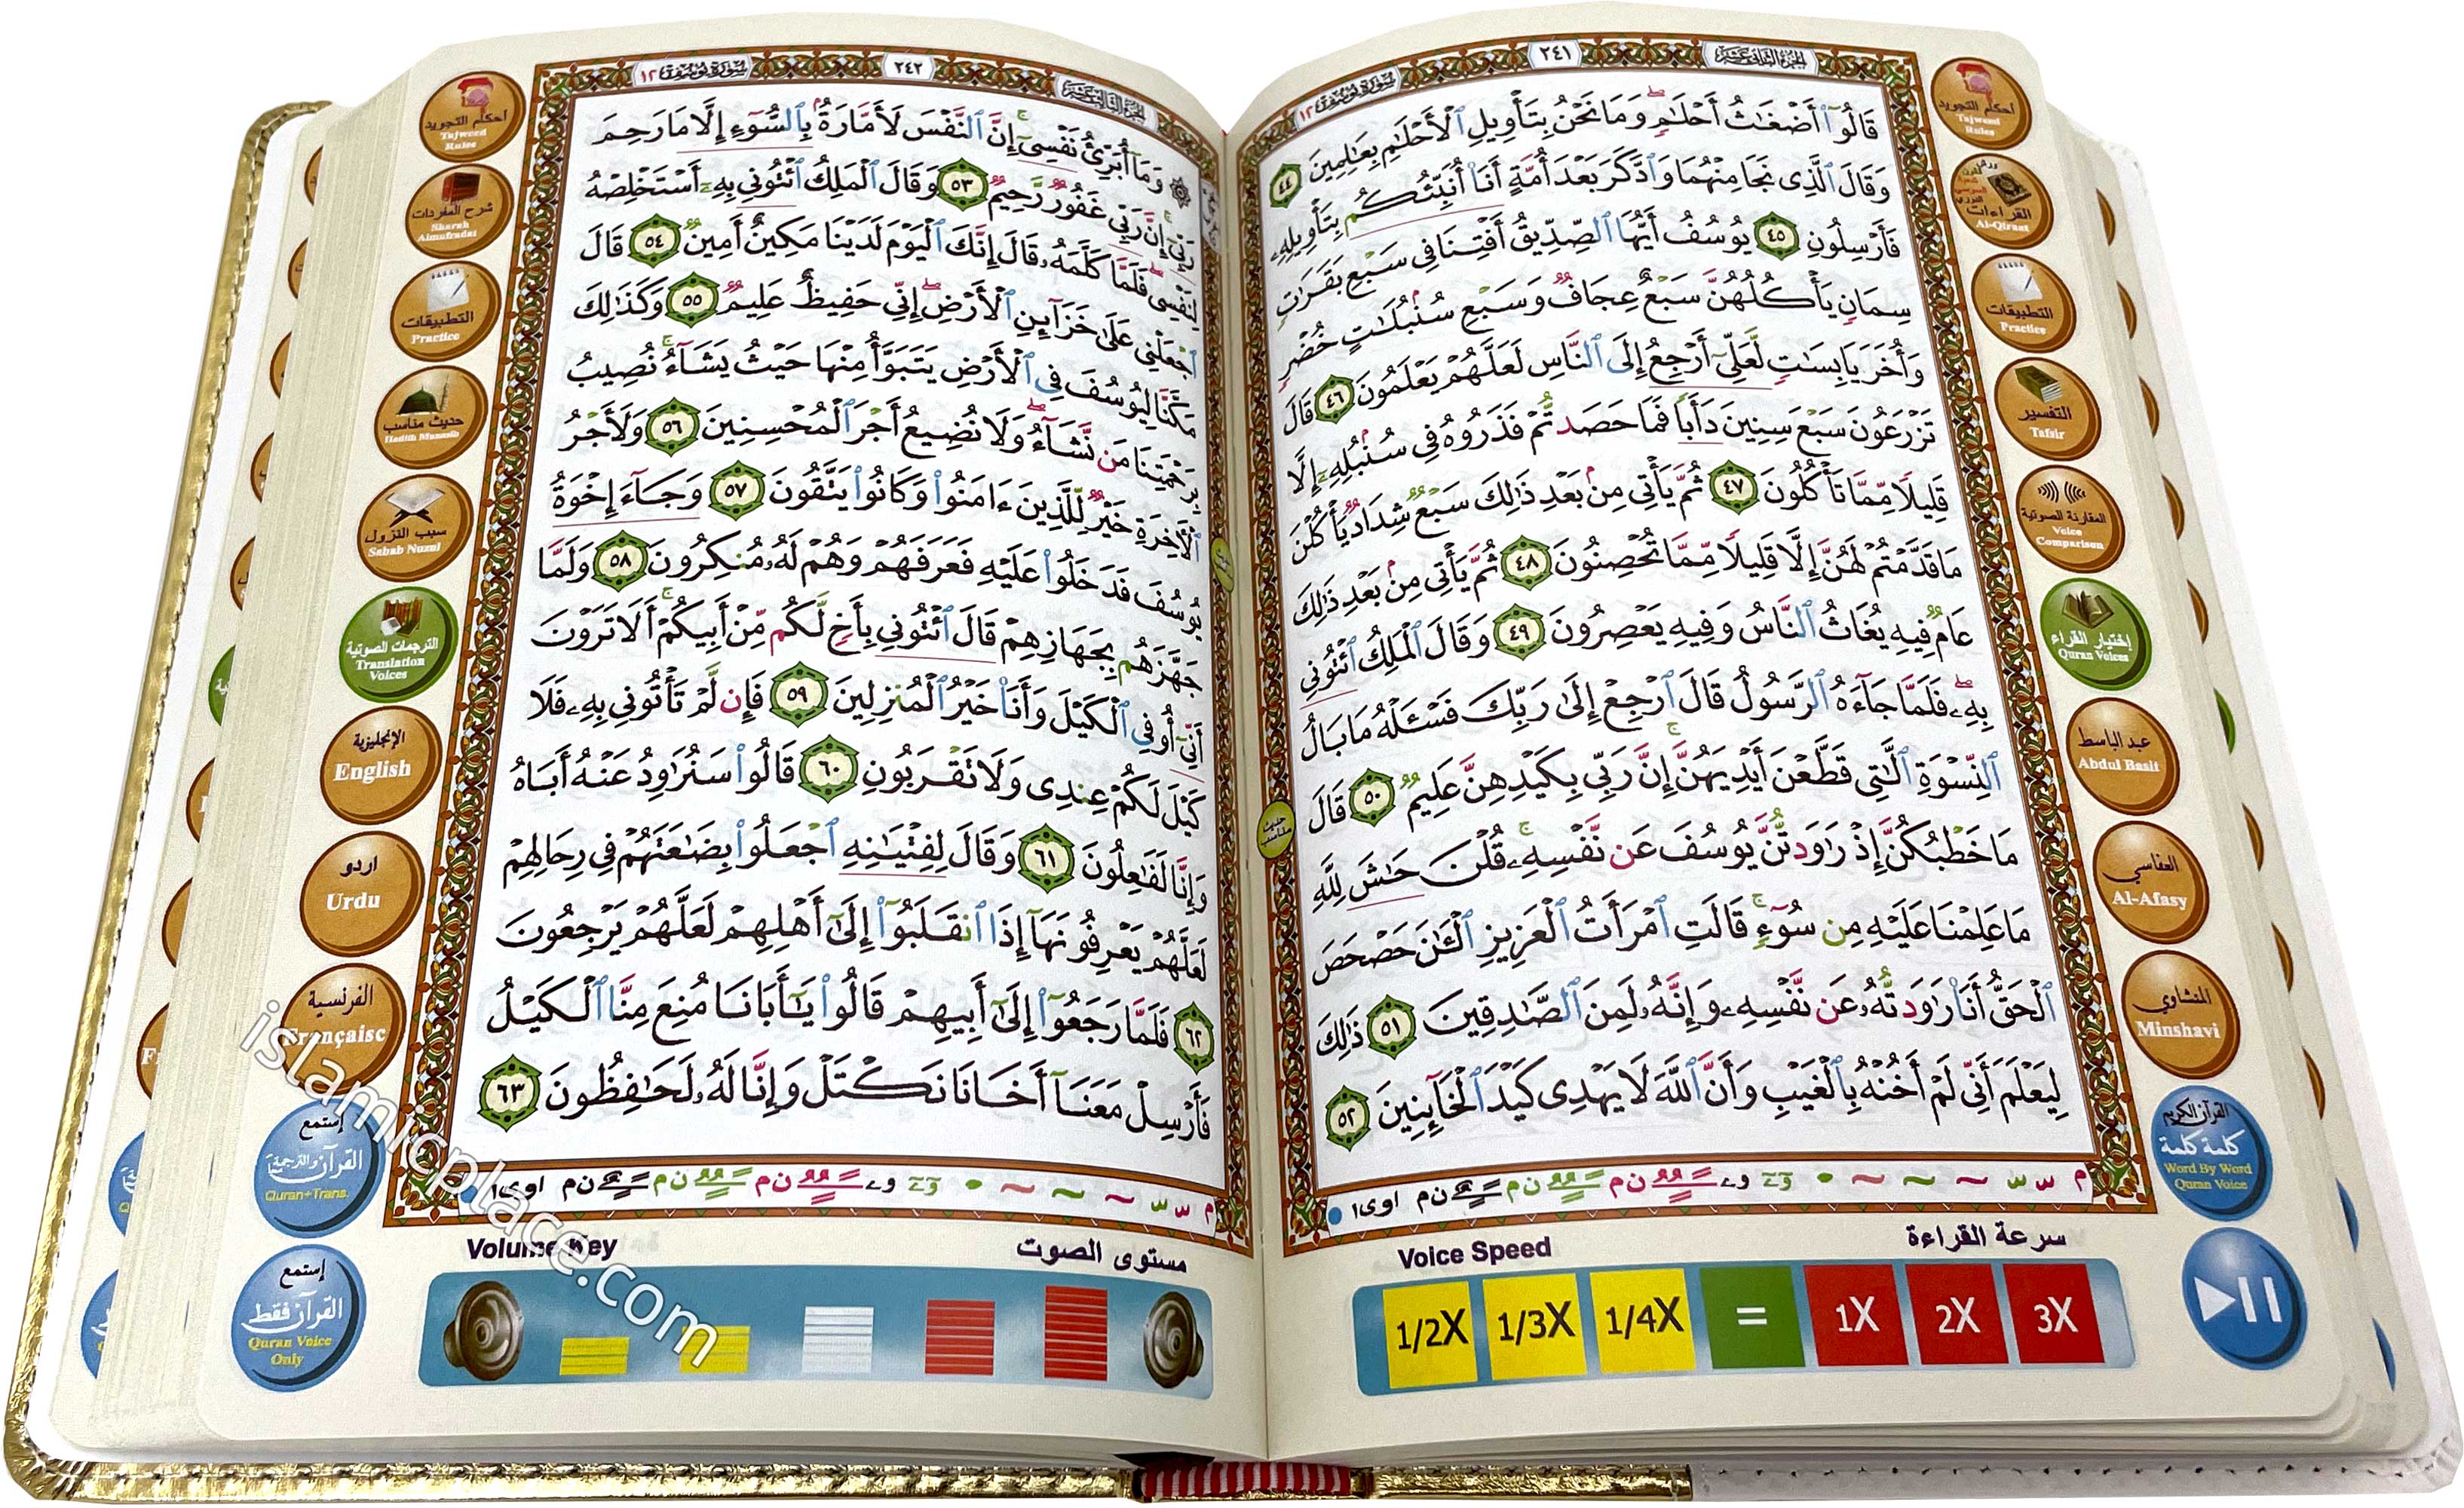 الجزء الثاني عشر
٢٤١
سورة يوسف ١٢
قَالُوٓا۟ أَضْغَـٰثُ أَحْلَـٰمٍ ۖ وَمَا نَحْنُ بِتَأْوِيلِ ٱلْأَحْلَـٰمِ بِعَـٰلِمِينَ ٤٤
وَقَالَ ٱلَّذِى نَجَا مِنْهُمَا وَٱدَّكَرَ بَعْدَ أُمَّةٍ أَنَا۠ أُنَبِّئُكُم بِتَأْوِيلِهِۦ
فَأَرْسِلُونِ ٤٥ يُوسُفُ أَيُّهَا ٱلصِّدِّيقُ أَفْتِنَا فِى سَبْعِ بَقَرَٰتٍ
سِمَانٍ يَأْكُلُهُنَّ سَبْعٌ عِجَافٌ وَسَبْعِ سُنۢبُلَـٰتٍ خُضْرٍ
وَأُخَرَ يَابِسَـٰتٍ لَّعَلِّىٓ أَرْجِعُ إِلَى ٱلنَّاسِ لَعَلَّهُمْ يَعْلَمُونَ ٤٦ قَالَ
تَزْرَعُونَ سَبْعَ سِنِينَ دَأَبًا فَمَا حَصَدتُّمْ فَذَرُوهُ فِى سُنۢبُلِهِۦٓ إِلَّا
قَلِيلًا مِّمَّا تَأْكُلُونَ ٤٧ ثُمَّ يَأْتِى مِنۢ بَعْدِ ذَٰلِكَ سَبْعٌ شِدَادٌ يَأْكُلْنَ
مَا قَدَّمْتُمْ لَهُنَّ إِلَّا قَلِيلًا مِّمَّا تُحْصِنُونَ ٤٨ ثُمَّ يَأْتِى مِنۢ بَعْدِ ذَٰلِكَ
عَامٌ فِيهِ يُغَاثُ ٱلنَّاسُ وَفِيهِ يَعْصِرُونَ ٤٩ وَقَالَ ٱلْمَلِكُ ٱئْتُونِى
بِهِۦ ۖ فَلَمَّا جَآءَهُ ٱلرَّسُولُ قَالَ ٱرْجِعْ إِلَىٰ رَبِّكَ فَسْـَٔلْهُ مَا بَالُ
ٱلنِّسْوَةِ ٱلَّـٰتِى قَطَّعْنَ أَيْدِيَهُنَّ ۚ إِنَّ رَبِّى بِكَيْدِهِنَّ عَلِيمٌ ٥٠ قَالَ
مَا خَطْبُكُنَّ إِذْ رَٰوَدتُّنَّ يُوسُفَ عَن نَّفْسِهِۦ ۚ قُلْنَ حَـٰشَ لِلَّهِ
مَا عَلِمْنَا عَلَيْهِ مِن سُوٓءٍ ۚ قَالَتِ ٱمْرَأَتُ ٱلْعَزِيزِ ٱلْـَٔـٰنَ حَصْحَصَ
ٱلْحَقُّ أَنَا۠ رَٰوَدتُّهُۥ عَن نَّفْسِهِۦ وَإِنَّهُۥ لَمِنَ ٱلصَّـٰدِقِينَ ٥١ ذَٰلِكَ
لِيَعْلَمَ أَنِّى لَمْ أَخُنْهُ بِٱلْغَيْبِ وَأَنَّ ٱللَّهَ لَا يَهْدِى كَيْدَ ٱلْخَآئِنِينَ ٥٢
حديث مناسب
أحكام التجويد
Tajweed
Rules
القراءات
Al-Qiraat
التطبيقات
Practice
التفسير
Tafsir
المقارنة الصوتية
Voice
Comparison
إختيار القراء
Quran Voices
عبد الباسط
Abdul Basit
العفاسي
Al-Afasy
المنشاوي
Minshavi
القرآن الكريم
كلمة كلمة
Word By Word
Quran Voice
سرعة القراءة
Voice Speed
1/2X 1/3X 1/4X = 1X 2X 3X
الجزء الثالث عشر
٢٤٢
سورة يوسف ١٢
وَمَآ أُبَرِّئُ نَفْسِىٓ ۚ إِنَّ ٱلنَّفْسَ لَأَمَّارَةٌۢ بِٱلسُّوٓءِ إِلَّا مَا رَحِمَ
رَبِّىٓ ۚ إِنَّ رَبِّى غَفُورٌ رَّحِيمٌ ٥٣ وَقَالَ ٱلْمَلِكُ ٱئْتُونِى بِهِۦٓ أَسْتَخْلِصْهُ
لِنَفْسِى ۖ فَلَمَّا كَلَّمَهُۥ قَالَ إِنَّكَ ٱلْيَوْمَ لَدَيْنَا مَكِينٌ أَمِينٌ ٥٤ قَالَ
ٱجْعَلْنِى عَلَىٰ خَزَآئِنِ ٱلْأَرْضِ ۖ إِنِّى حَفِيظٌ عَلِيمٌ ٥٥ وَكَذَٰلِكَ
مَكَّنَّا لِيُوسُفَ فِى ٱلْأَرْضِ يَتَبَوَّأُ مِنْهَا حَيْثُ يَشَآءُ ۚ نُصِيبُ
بِرَحْمَتِنَا مَن نَّشَآءُ ۖ وَلَا نُضِيعُ أَجْرَ ٱلْمُحْسِنِينَ ٥٦ وَلَأَجْرُ
ٱلْـَٔاخِرَةِ خَيْرٌ لِّلَّذِينَ ءَامَنُوا۟ وَكَانُوا۟ يَتَّقُونَ ٥٧ وَجَآءَ إِخْوَةُ
يُوسُفَ فَدَخَلُوا۟ عَلَيْهِ فَعَرَفَهُمْ وَهُمْ لَهُۥ مُنكِرُونَ ٥٨ وَلَمَّا
جَهَّزَهُم بِجَهَازِهِمْ قَالَ ٱئْتُونِى بِأَخٍ لَّكُم مِّنْ أَبِيكُمْ ۚ أَلَا تَرَوْنَ
أَنِّىٓ أُوفِى ٱلْكَيْلَ وَأَنَا۠ خَيْرُ ٱلْمُنزِلِينَ ٥٩ فَإِن لَّمْ تَأْتُونِى بِهِۦ فَلَا
كَيْلَ لَكُمْ عِندِى وَلَا تَقْرَبُونِ ٦٠ قَالُوا۟ سَنُرَٰوِدُ عَنْهُ أَبَاهُ
وَإِنَّا لَفَـٰعِلُونَ ٦١ وَقَالَ لِفِتْيَـٰنِهِ ٱجْعَلُوا۟ بِضَـٰعَتَهُمْ فِى رِحَالِهِمْ
لَعَلَّهُمْ يَعْرِفُونَهَآ إِذَا ٱنقَلَبُوٓا۟ إِلَىٰٓ أَهْلِهِمْ لَعَلَّهُمْ يَرْجِعُونَ
٦٢ فَلَمَّا رَجَعُوٓا۟ إِلَىٰٓ أَبِيهِمْ قَالُوا۟ يَـٰٓأَبَانَا مُنِعَ مِنَّا ٱلْكَيْلُ
فَأَرْسِلْ مَعَنَآ أَخَانَا نَكْتَلْ وَإِنَّا لَهُۥ لَحَـٰفِظُونَ ٦٣
أحكام التجويد
Tajweed
Rules
شرح المفردات
Sharah
Almufradat
التطبيقات
Practice
حديث مناسب
Hadith Munasib
سبب النزول
Sabab Nuzul
الترجمات الصوتية
Translation
Voices
الإنجليزية
English
اردو
Urdu
الفرنسية
Françaisc
إستمع
القرآن والترجمة معا
Quran+Trans.
إستمع
القرآن فقط
Quran Voice
Only
مستوى الصوت
Volume Key
islamicplace.com